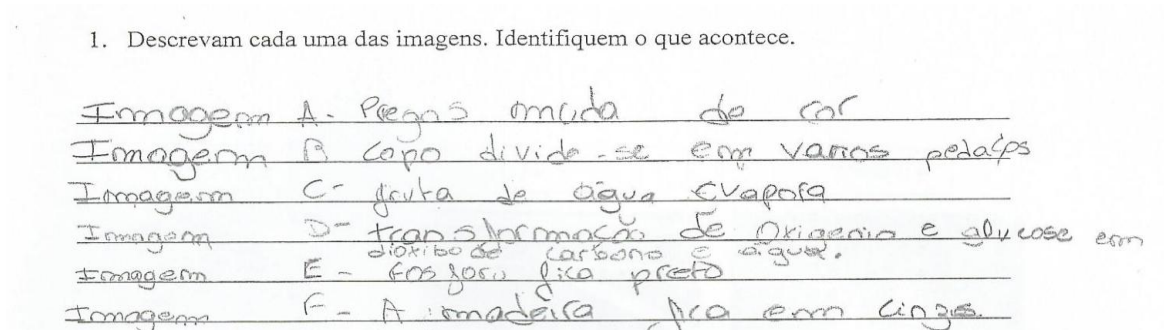 1. Descrevam cada uma das imagens. Identifiquem o que acontece.
Imagem A - Pregos muda de cor
Imagem B copo divide-se em varios pedaços
Imagem C - gruta de água evapora
Imagem D - transformação de Oxigenio e glucose em
dioxibo de carbono e água.
Imagem E - fosforo fica preto
Imagem F - A madeira fica em cinzas.